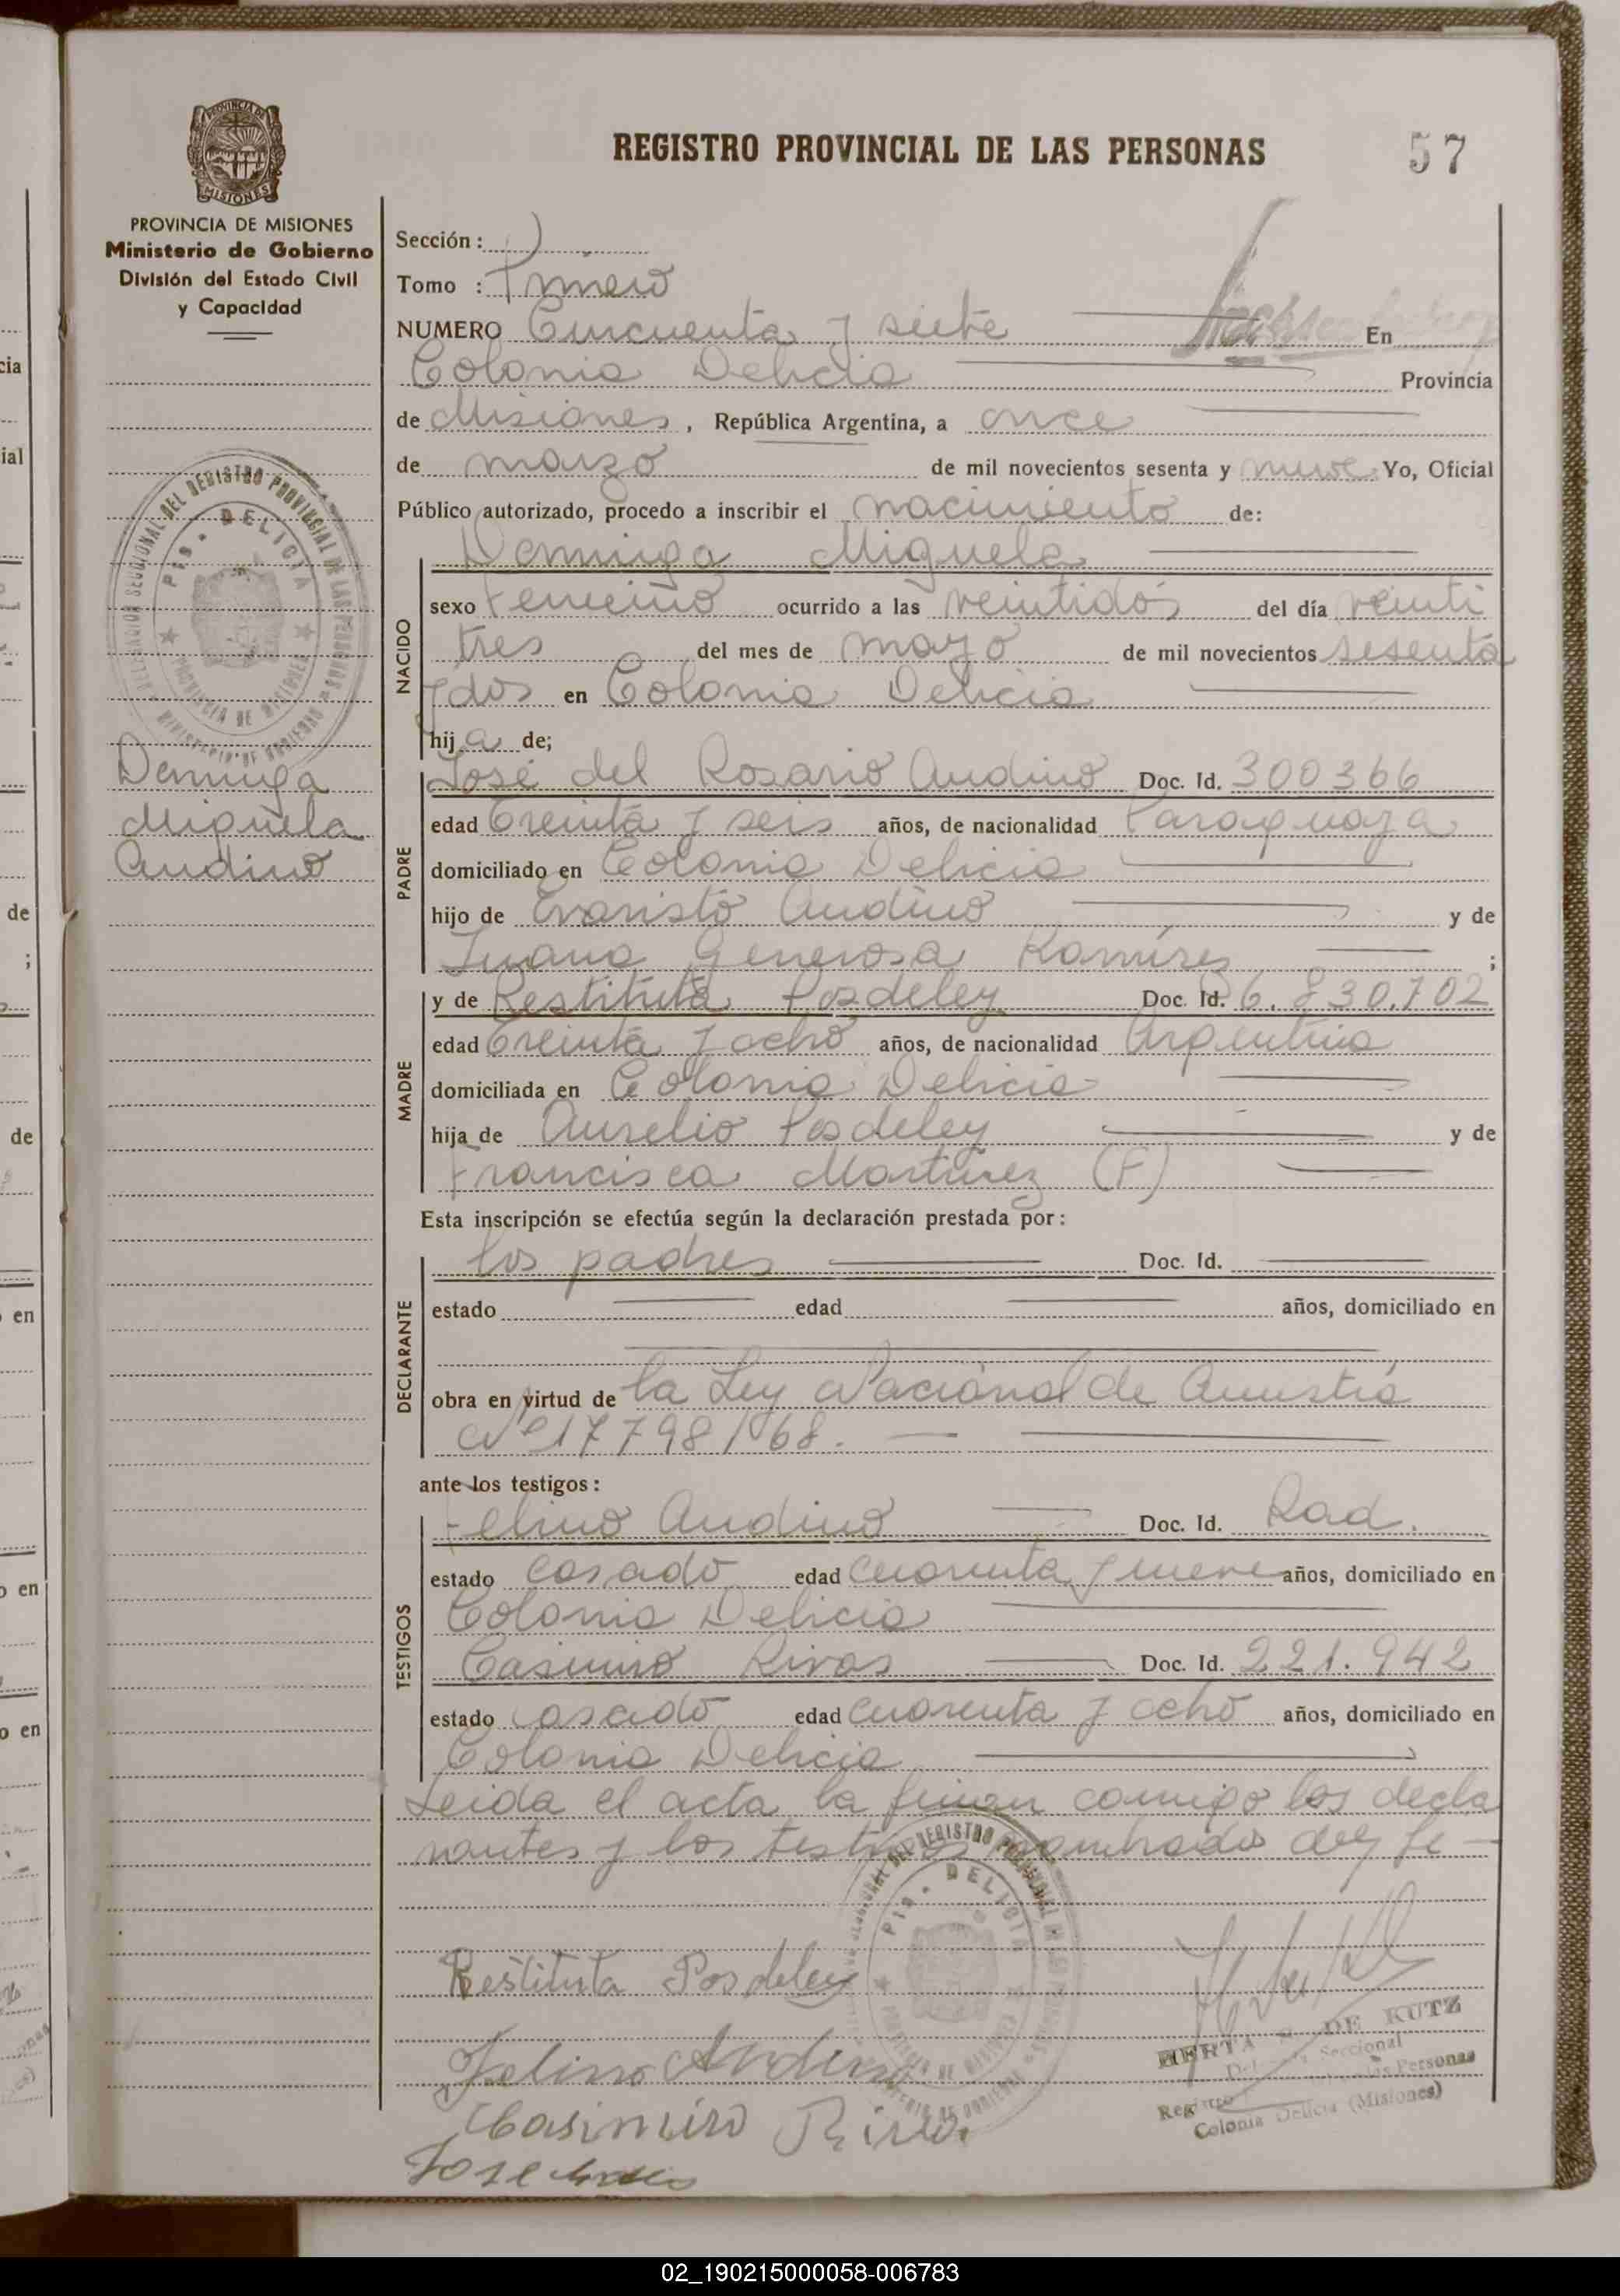 REGISTRO PROVINCIAL DE LAS PERSONAS
57
PROVINCIA DE
MISIONES
PROVINCIA DE MISIONES
Ministerio de Gobierno
División del Estado Civil
y Capacidad
Sección :
Tomo : Primero
NUMERO Cincuenta y siete En
Colonia Delicia Provincia
de Misiones, República Argentina, a once
de marzo de mil novecientos sesenta y nueve Yo, Oficial
Público autorizado, procedo a inscribir el nacimiento de:
Miguela
NACIDO
sexo Femenino ocurrido a las veintidós del día veinti
tres del mes de mayo de mil novecientos sesenta
y dos en Colonia Delicia
hij a de;
PADRE
José del Rosario Andino Doc. Id. 300366
edad Treinta y seis años, de nacionalidad Paraguaya
domiciliado en Colonia Delicia
hijo de Evaristo Andino y de
Juana Generosa Ramírez ;
MADRE
y de Restituta Posdeley Doc. Id. 6.830.702
edad Treinta y ocho años, de nacionalidad Argentina
domiciliada en Colonia Delicia
hija de Aurelio Posdeley y de
Francisca Martínez (F)
Esta inscripción se efectúa según la declaración prestada por:
DECLARANTE
los padres Doc. Id.
estado edad años, domiciliado en
obra en virtud de la Ley Nacional de Amnistía
Nº 17798/68.
ante los testigos:
TESTIGOS
Felino Andino Doc. Id. Rad.
estado casado edad cuarenta y nueve años, domiciliado en
Colonia Delicia
Casimiro Rivas Doc. Id. 221.942
estado casado edad cuarenta y ocho años, domiciliado en
Colonia Delicia
Leída el acta la firman conmigo los decla
rantes y los testigos nombrados doy fe
Miguela
Andino
DELEGACION SECCIONAL DEL REGISTRO PROVINCIAL DE LAS PERSONAS
DELICIA
PROVINCIA DE MISIONES
MINISTERIO DE GOBIERNO
Restituta Posdeley
Felino Andino
Casimiro Rivas
Jose
HERTA DE KUTZ
Seccional
Personas
Colonia Delicia (Misiones)
cia
ial
de
;
de
en
o en
o en
02_190215000058-006783